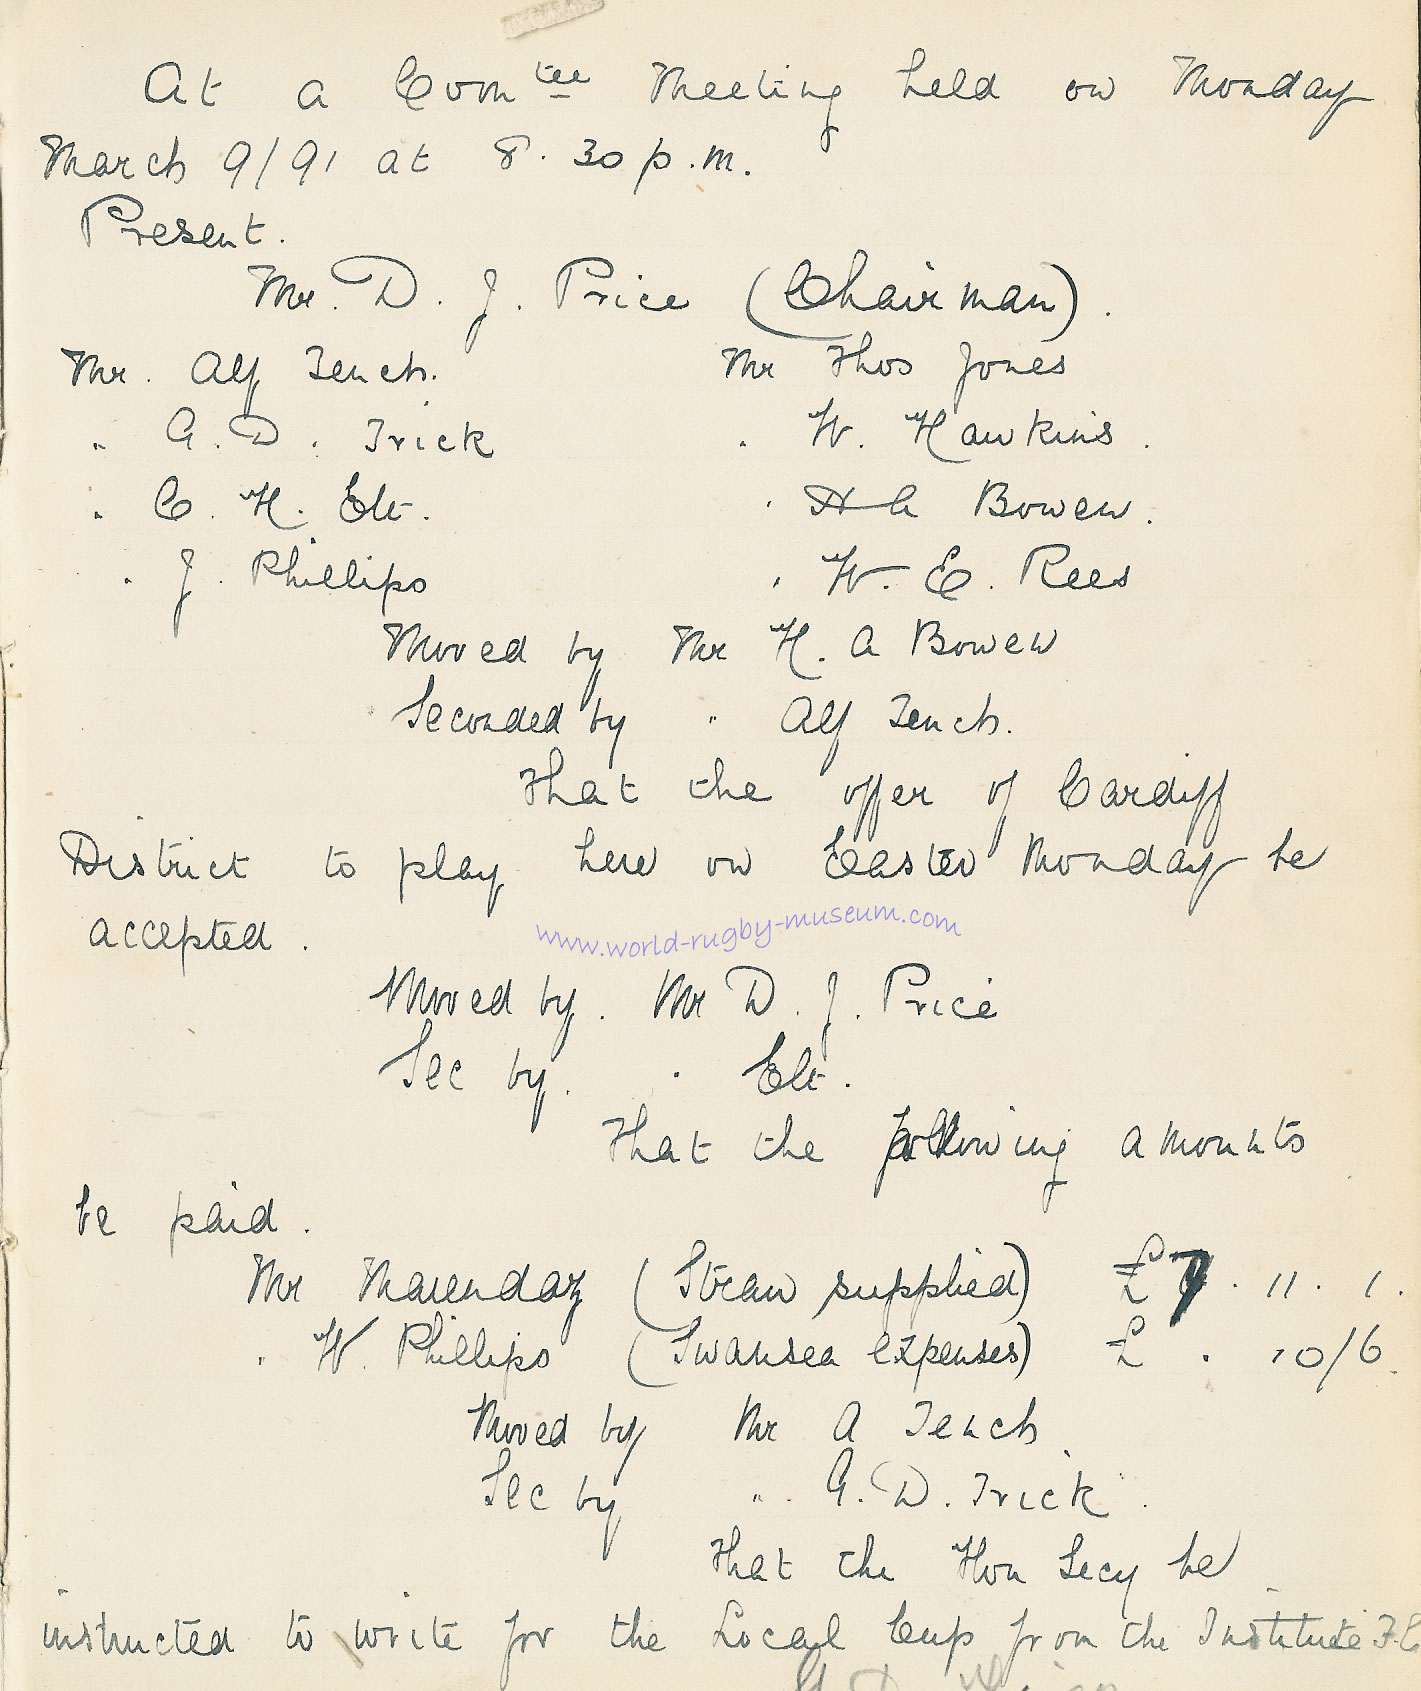 At a Comtee Meeting held on Monday
March 9/91 at 8.30 p.m.
Present.
Mr. D. J. Price (Chairman).
Mr. Alf Tench. Mr Thos Jones
" G. D. Trick " W. Hawkins.
" C. H. Elt. " H A Bowen.
" J. Phillips " W. E. Rees
Moved by Mr H. A Bowen
Seconded by " Alf Tench.
That the offer of Cardiff
District to play here on Easter Monday be
accepted.
www.world-rugby-museum.com
Moved by. Mr D. J. Price
Sec by. " Elt.
That the following amounts
be paid.
Mr Marendaz (Straw supplied) £7. 11. 1.
" W. Phillips (Swansea expenses) £ . 10/6.
Moved by Mr A Tench
Sec by " G. D. Trick.
That the Hon Secy be
instructed to write for the Local Cup from the Institute F.C